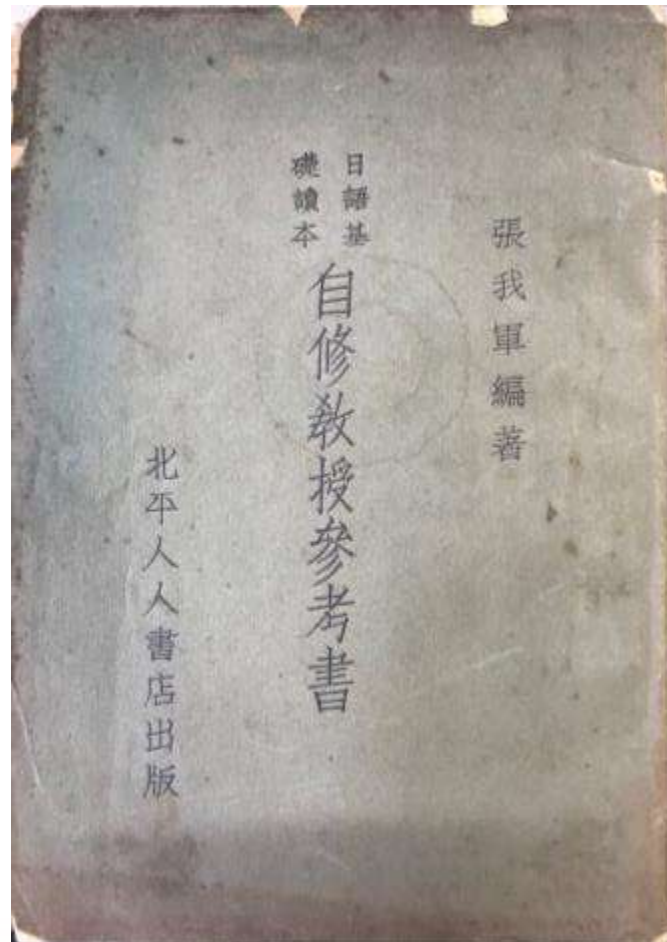 張我軍編著
日語基
礎讀本
自修教授參考書
北平人人書店出版